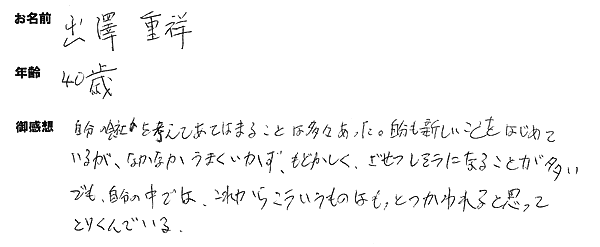 お名前 出澤 重祥
年齢 40歳
御感想 自分の会社を考えてあてはまることは多々あった。自分も新しいことをはじめて
いるが、なかなかうまくいかず、もどかしく、ざせつしそうになることが多い
でも、自分の中では、これからこういうものはもっとつかわれると思って
とりくんでいる。